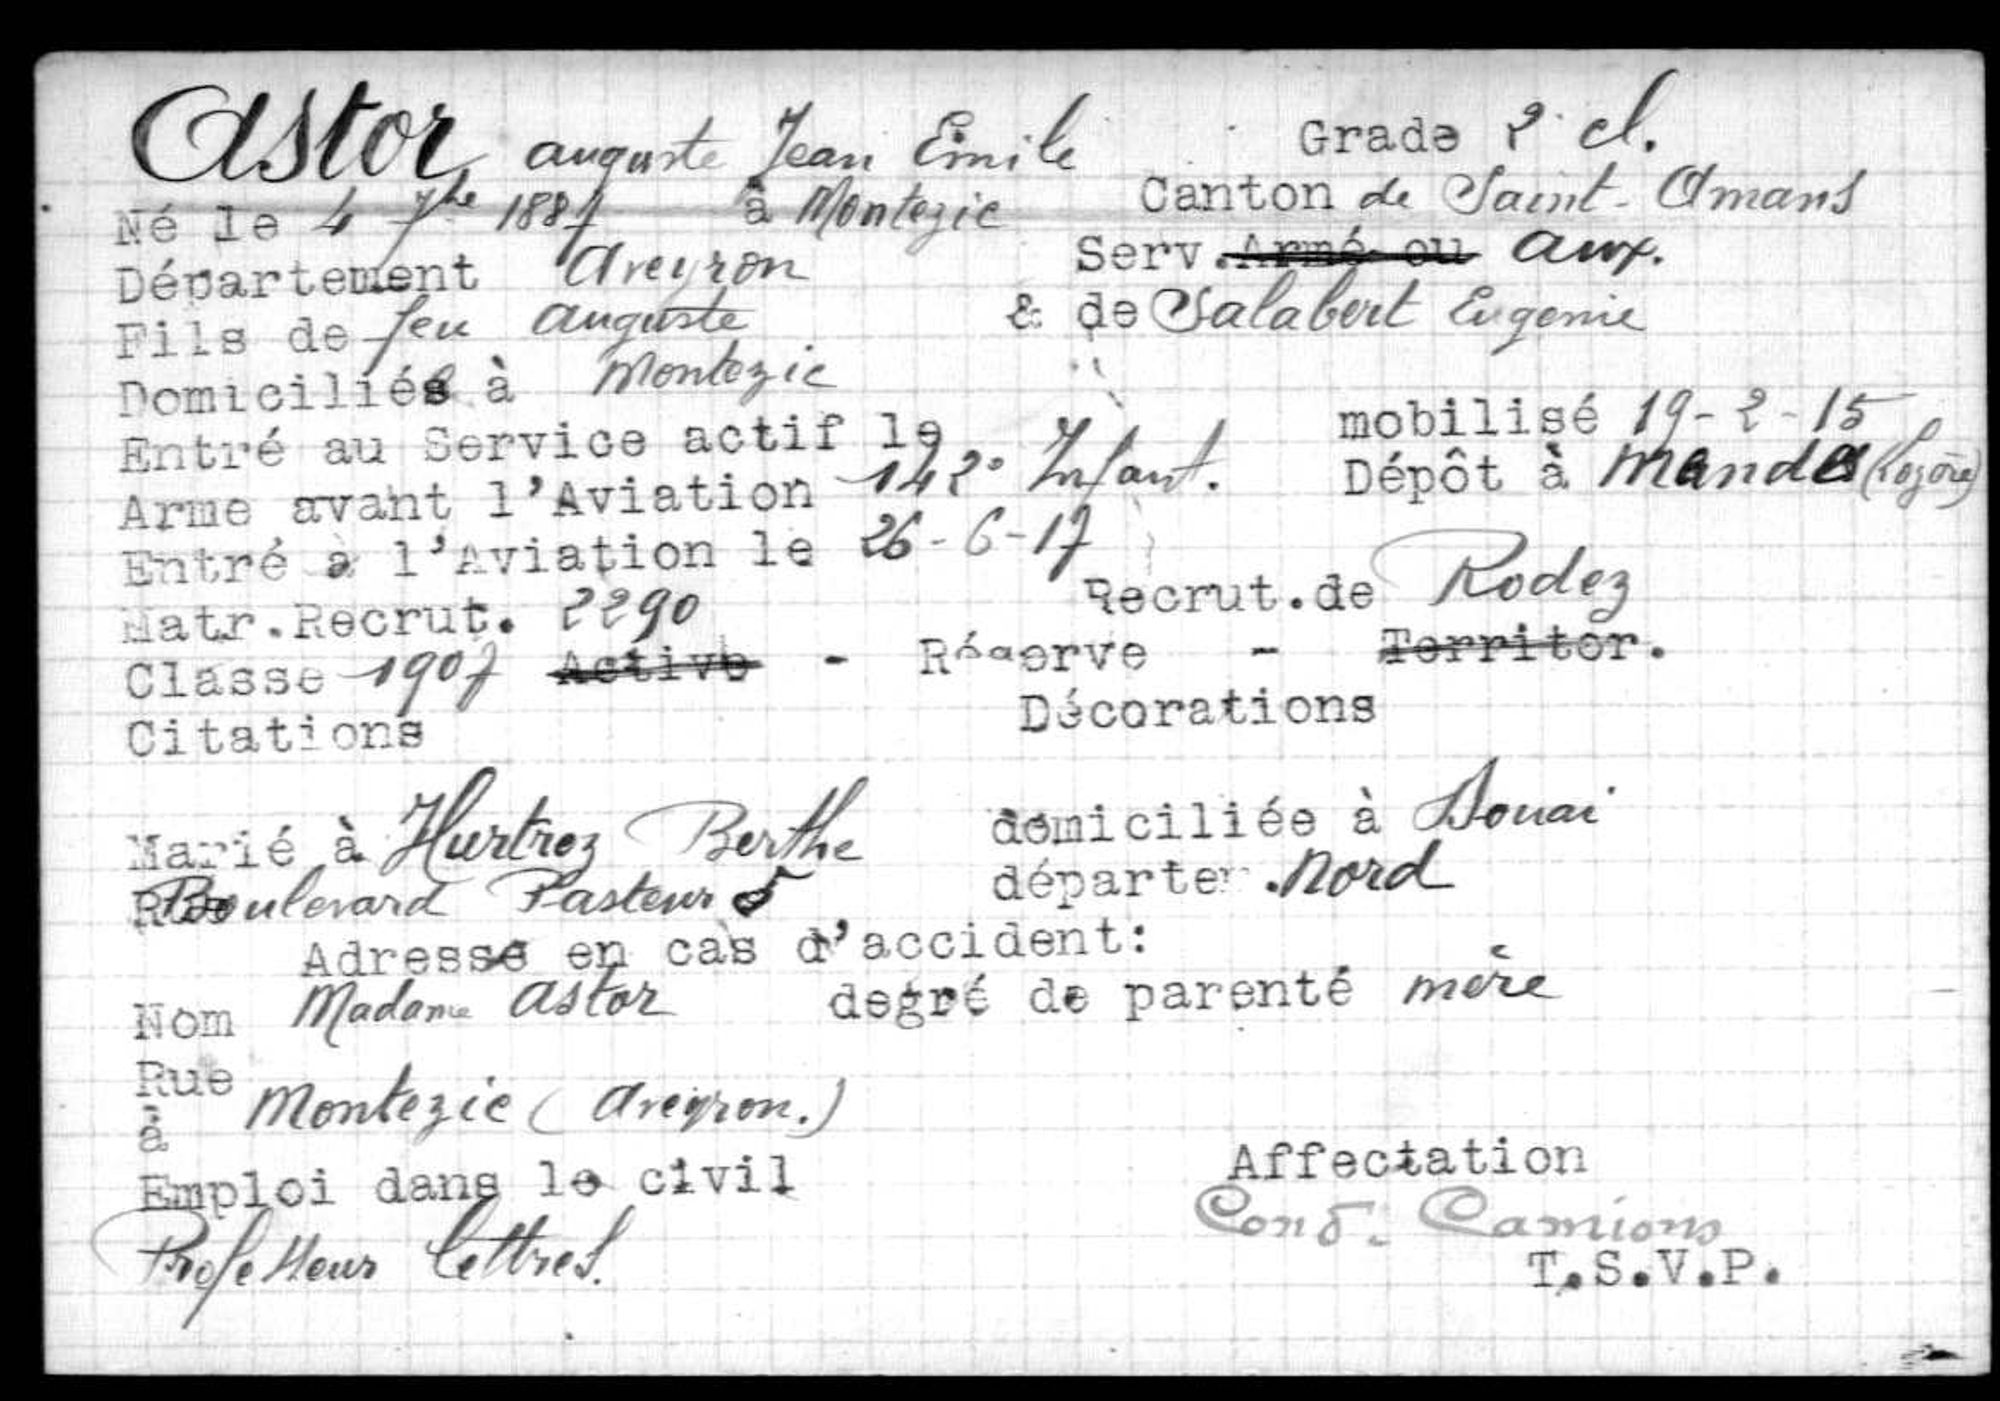 Astor auguste Jean Emile Grade 2e cl.
Né le 4 7bre 1887 à Montezic Canton de Saint-Amans
Département Aveyron Serv. Armé ou aux.
Fils de feu auguste & de Salabert Eugenie
Domiciliés à Montezic
Entré au Service actif le mobilisé 19-2-15
Arme avant l'Aviation 142° Infant. Dépôt à Mande (Lozère)
Entré à l'Aviation le 26-6-17
Matr.Recrut. 2290 Recrut.de Rodez
Classe 1907 Active - Réserve - Territor.
Citations Décorations
Marié à Hurtrez Berthe domiciliée à Douai
Boulevard Pasteur 5 départem.Nord
Adresse en cas d'accident:
Nom Madame Astor degré de parenté mère
Rue
à Montezic (Aveyron.)
Emploi dans le civil Affectation
Professeur lettres. Cond. Camions
T.S.V.P.